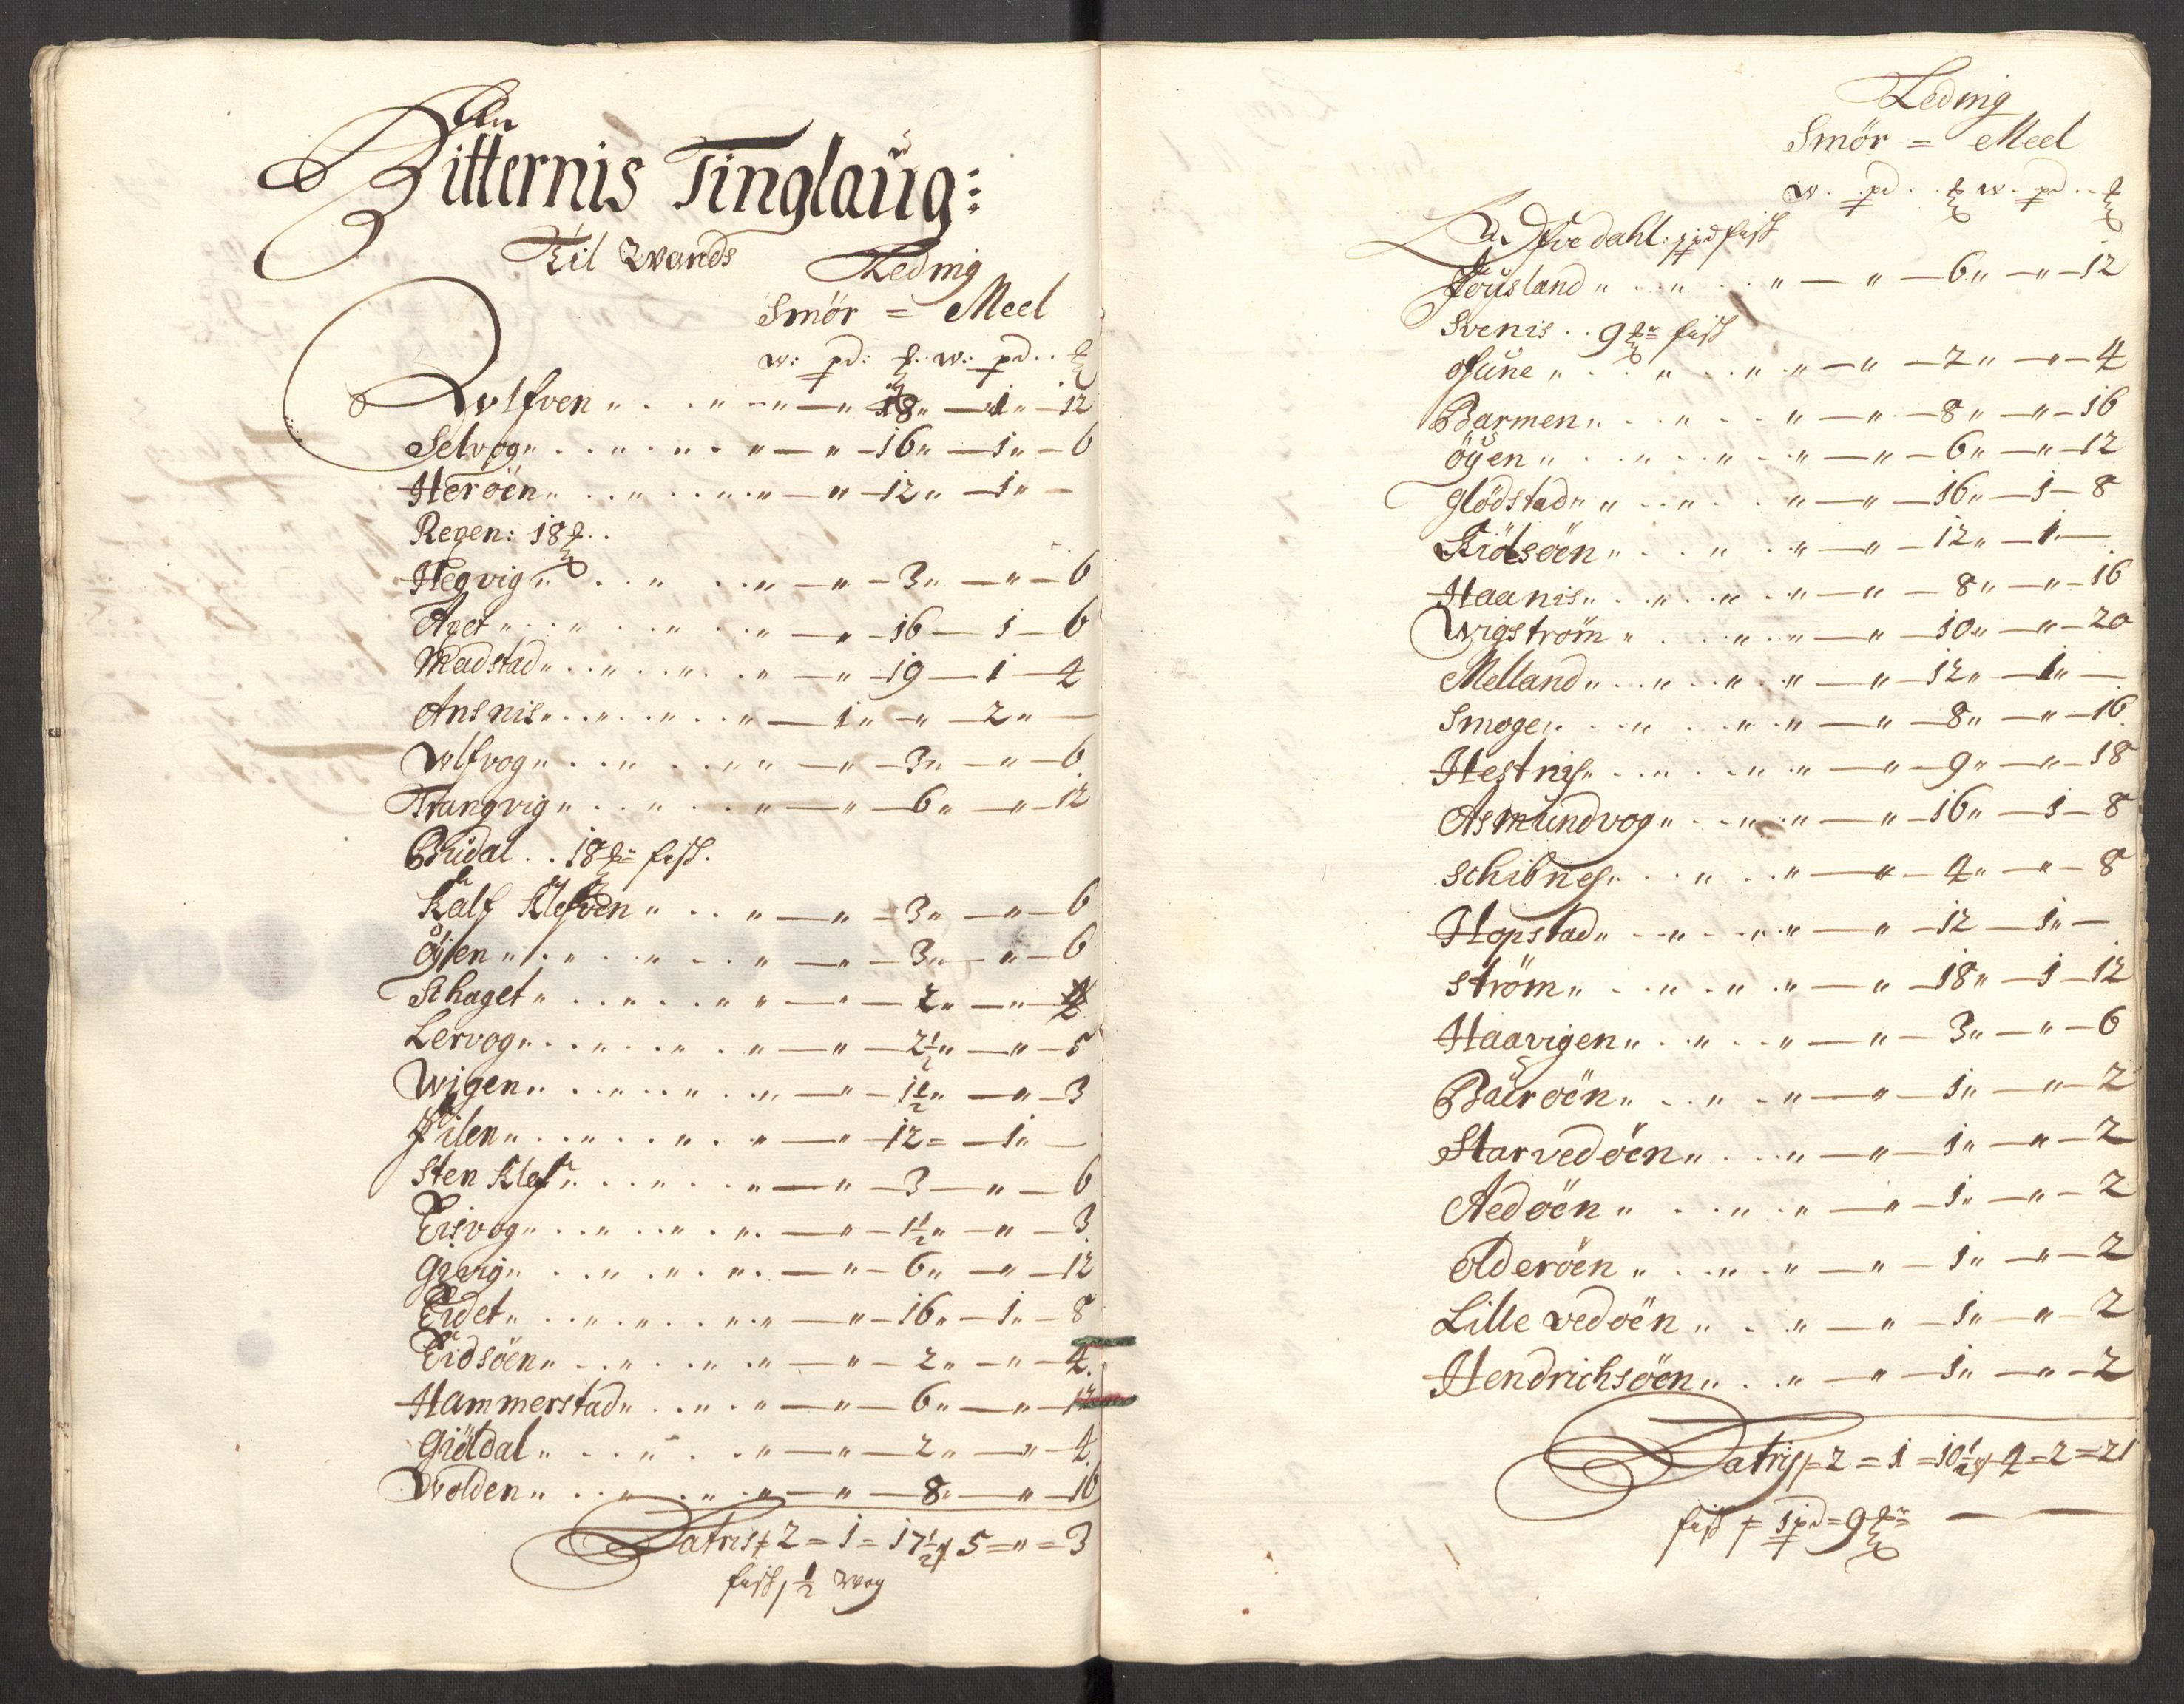 Bitternis Tinglaug:
Til Zvands Leding
Smör = Meel
w: pd: ℔. w: pd.. ℔
Wlfven " . . " . " — " 18 " — 1 " — 12
Selvog " . . " . " . " — " — 16 " — 1 " — 6
Heröen " . . " . . " . " — " — 12 " — 1 " —
Regen: 18 ℔ . .
Hegvig " . . " . . " — " — 3 " — " — 6
Aget " . . " . . " . . " — " — 16 — 1 — 6
Madstad " . . " . . " . . " — " — 19 — 1 — 4
Ansnis " . . " . . " . . " — 1 " — " — 2 " —
Wlfvog " . . " . . " " — " — 3 " — " — 6
Trangvig " . . " . . " — " — 6 " — " — 12
Budal . . 18 ℔ fisk.
Kalf Klefven " . . " — " — 3 " — " — 6
öyen " . " . " . . " — " — 3 " — " — 6
Schaget " . . " . . " " — " — 2 " — " — 4
Lervog " . . " . . " . " — " — 2½ " — " — 5
Wigen " . . " . . " . " — " — 1½ " — " — 3
Kilen " . . " . . " . " — " — 12 = — 1 " —
Sten Klef " . . " . . " — " — 3 — " — 6
Eisvog " . . " . . " . " . — " — 1½ " — " — 3
Gjevig " . . " . " . " . — " — 6 " — " — 12
Eidet " . . " . " . . " . " — " — 16 " — 1 " — 8
Eidsöen " . . " . . " . " — " — 2 " — " — 4
Hammerstad " . . " . " — " — 6 " — " — 12
Giöldal " . . " . . " — " — 2 " — " — 4
Wolden " . . " . . " . " — " — 8 " — " — 16
Latris 2 = 1 = 17½ 5 = " = 3
fisk, ½ Wog
Leding
Smör = Meel
w. pd. . ℔ w. pd. . ℔
dahl: 1 pd fisk
Föusland " . . " . . " — " — 6 " — " — 12
Svenis . . 9 ℔ fisk
Fune " . . " . . " " — " — 2 " — " — 4
Barmen " . . " . . " — " — 8 " — " — 16
öyen " . . " . . " . " — " — 6 " — " — 12
Glödstad " " . . " . . " — " — 16 " — 1 — 8
Kiölsöen " . . " . " — " — 12 " — 1 " —
Haanis " . . " . " . " — " — 8 " — " — 16
Wigström " . . " . " — " — 10 " — " — 20
Melland " . . " . . " . " — " — 12 " — 1 " —
Smoge " . . " . . " . " — " — 8 " — " — 16
Hestnis " . . " . . " . " — " — 9 " — " — 18
Asmundvog " . . " . " — " — 16 " — 1 — 8
Schibnes " . . " . . " — " — 4 " — " — 8
Hopstad " . . " . . " . " — " — 12 — 1 " —
ström " . . " . . " . " — " — 18 " — 1 — 12
Haavigen " . . " . . " — " — 3 " — " — 6
Bauröen " . . " . " — " — 1 " — " — 2
Starvedöen " . . " — " — 1 " — " — 2
Aedöen " . . " . " — " — 1 " — " — 2
olderöen " . . " . " — " — 1 " — " — 2
Lille vedöen " . . " — " — 1 " — " — 2
Hendrichsöen " . . " — " — 1 " — " — 2
Latris 2 = 1 = 10½ 4 = 2 = 21
fisk = 1 pd = 9 ℔ — —